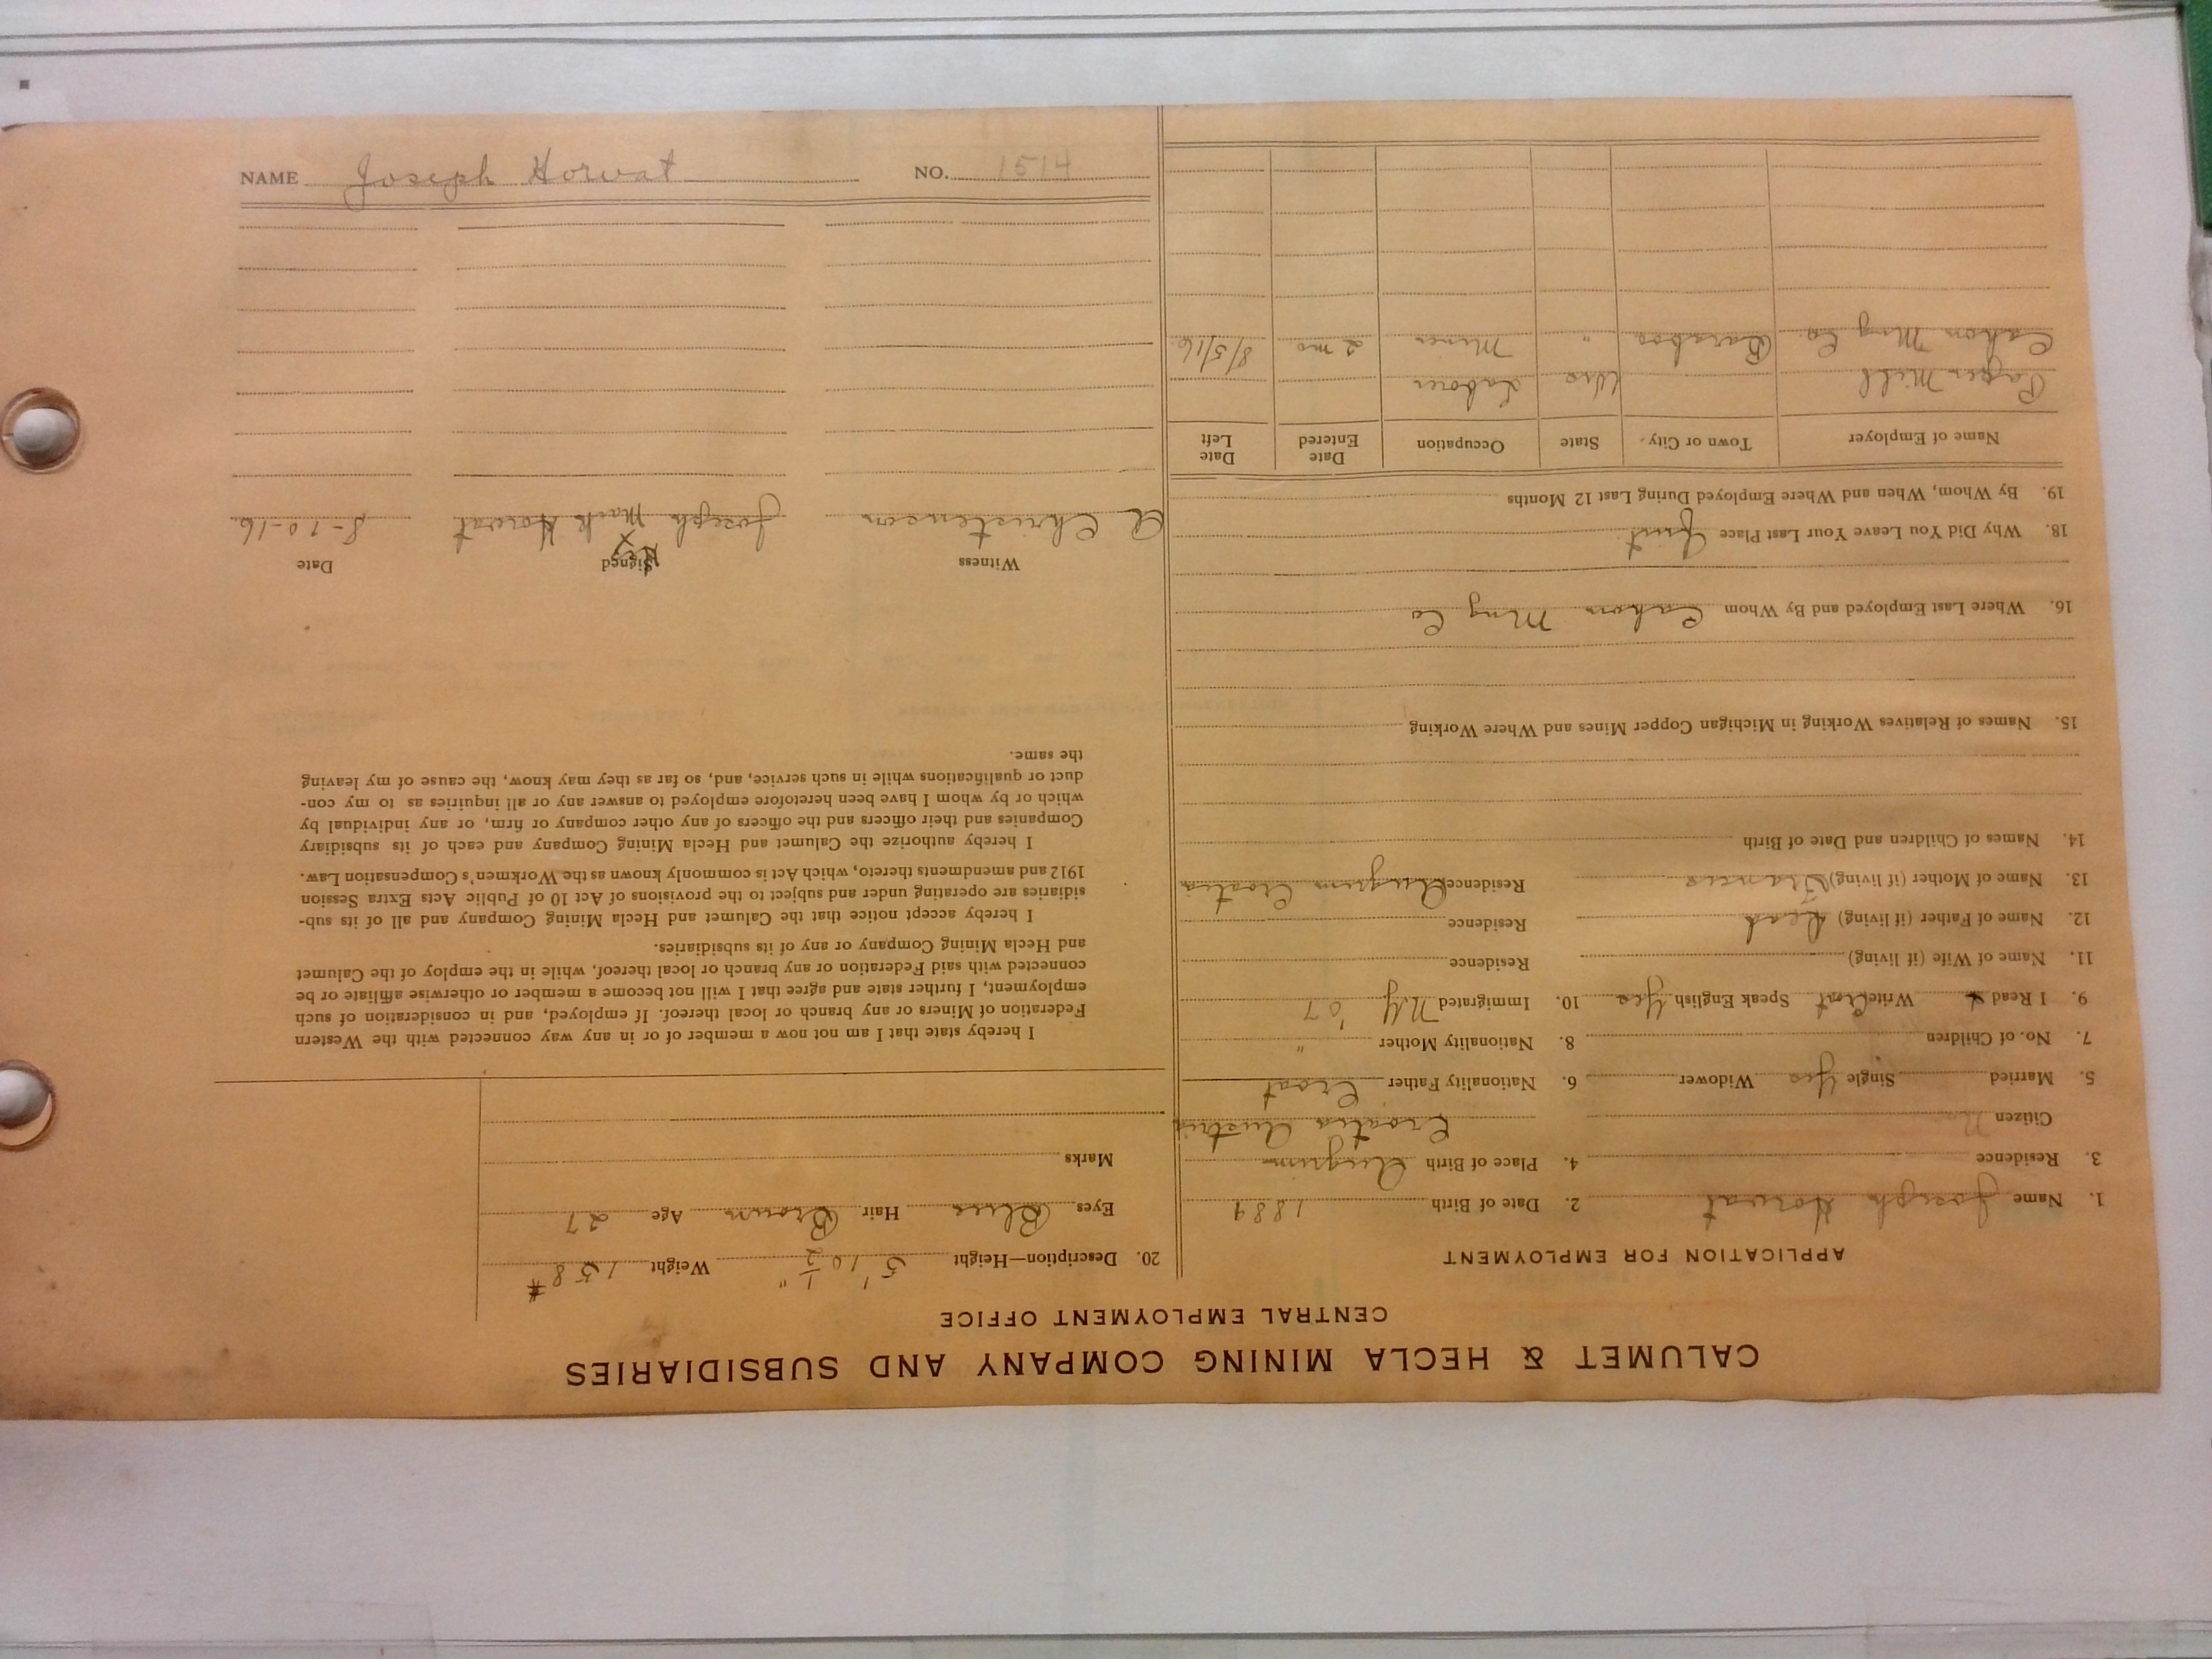 NAME Joseph Horvat NO. 1514
CALUMET & HECLA MINING COMPANY AND SUBSIDIARIES
CENTRAL EMPLOYMENT OFFICE
APPLICATION FOR EMPLOYMENT
1. Name Joseph Horvat 2. Date of Birth 1889
3. Residence 4. Place of Birth Augrum
Citizen No Croatia Austria
5. Married Single Yes Widower 6. Nationality Father Croat
7. No. of Children 8. Nationality Mother "
9. I Read & Write Croat Speak English Yes 10. Immigrated N.Y. '07
11. Name of Wife (if living) Residence
12. Name of Father (if living) Dead Residence
13. Name of Mother (if living) Francis Residence Augrum Croatia
14. Names of Children and Date of Birth
15. Names of Relatives Working in Michigan Copper Mines and Where Working
16. Where Last Employed and By Whom Cahon Mng Co
18. Why Did You Leave Your Last Place Quit
19. By Whom, When and Where Employed During Last 12 Months
Name of Employer Town or City State Occupation Date Entered Date Left
Paper Mill Wis Laborer
Cahon Mng Co Baraboo " Miner 2 mo 8/5/16
20. Description—Height 5' 10 1/2" Weight 158 #
Eyes Blue Hair Brown Age 27
Marks
I hereby state that I am not now a member of or in any way connected with the Western
Federation of Miners or any branch or local thereof. If employed, and in consideration of such
employment, I further state and agree that I will not become a member or otherwise affiliate or be
connected with said Federation or any branch or local thereof, while in the employ of the Calumet
and Hecla Mining Company or any of its subsidiaries.
I hereby accept notice that the Calumet and Hecla Mining Company and all of its sub-
sidiaries are operating under and subject to the provisions of Act 10 of Public Acts Extra Session
1912 and amendments thereto, which Act is commonly known as the Workmen's Compensation Law.
I hereby authorize the Calumet and Hecla Mining Company and each of its subsidiary
Companies and their officers and the officers of any other company or firm, or any individual by
which or by whom I have been heretofore employed to answer any or all inquiries as to my con-
duct or qualifications while in such service, and, so far as they may know, the cause of my leaving
the same.
Witness Signed Date
His
X
A Christensen Joseph Mark Horvat 8-10-16